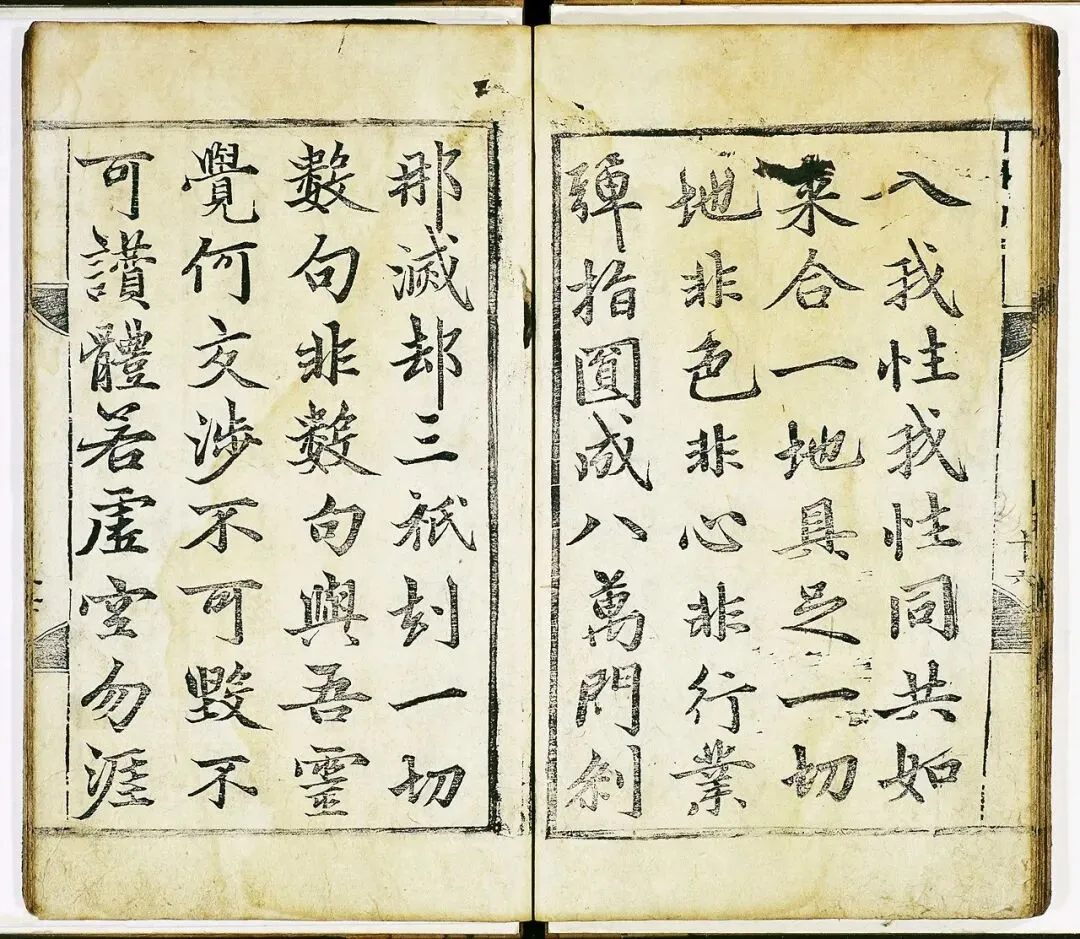 入我性我性同共如
來合一地具足一切
地非色非心非行業
彈指圓成八萬門刹
那滅却三祇刼一切
數句非數句與吾靈
覺何交涉不可毀不
可讚體若虛空勿涯